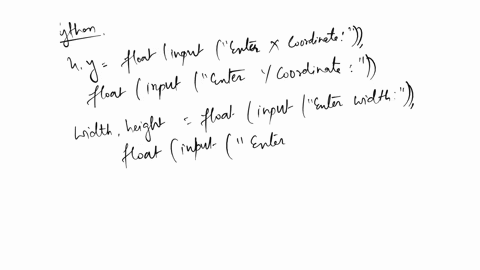 ython.
x, y = float (input ("Enter X Coordinate:")),
float (input ("Enter Y Coordinate:"))
width, height = float (input ("Enter width:")),
float (input ("Enter